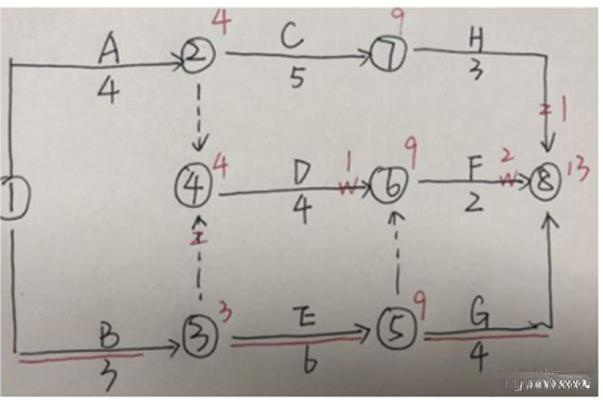 4 9
A ② C ⑦ H
4 5 3
1
4 1 9 2 13
① ④ D ⑥ F ⑧
4 2
3 9
B ③ E ⑤ G
3 6 4